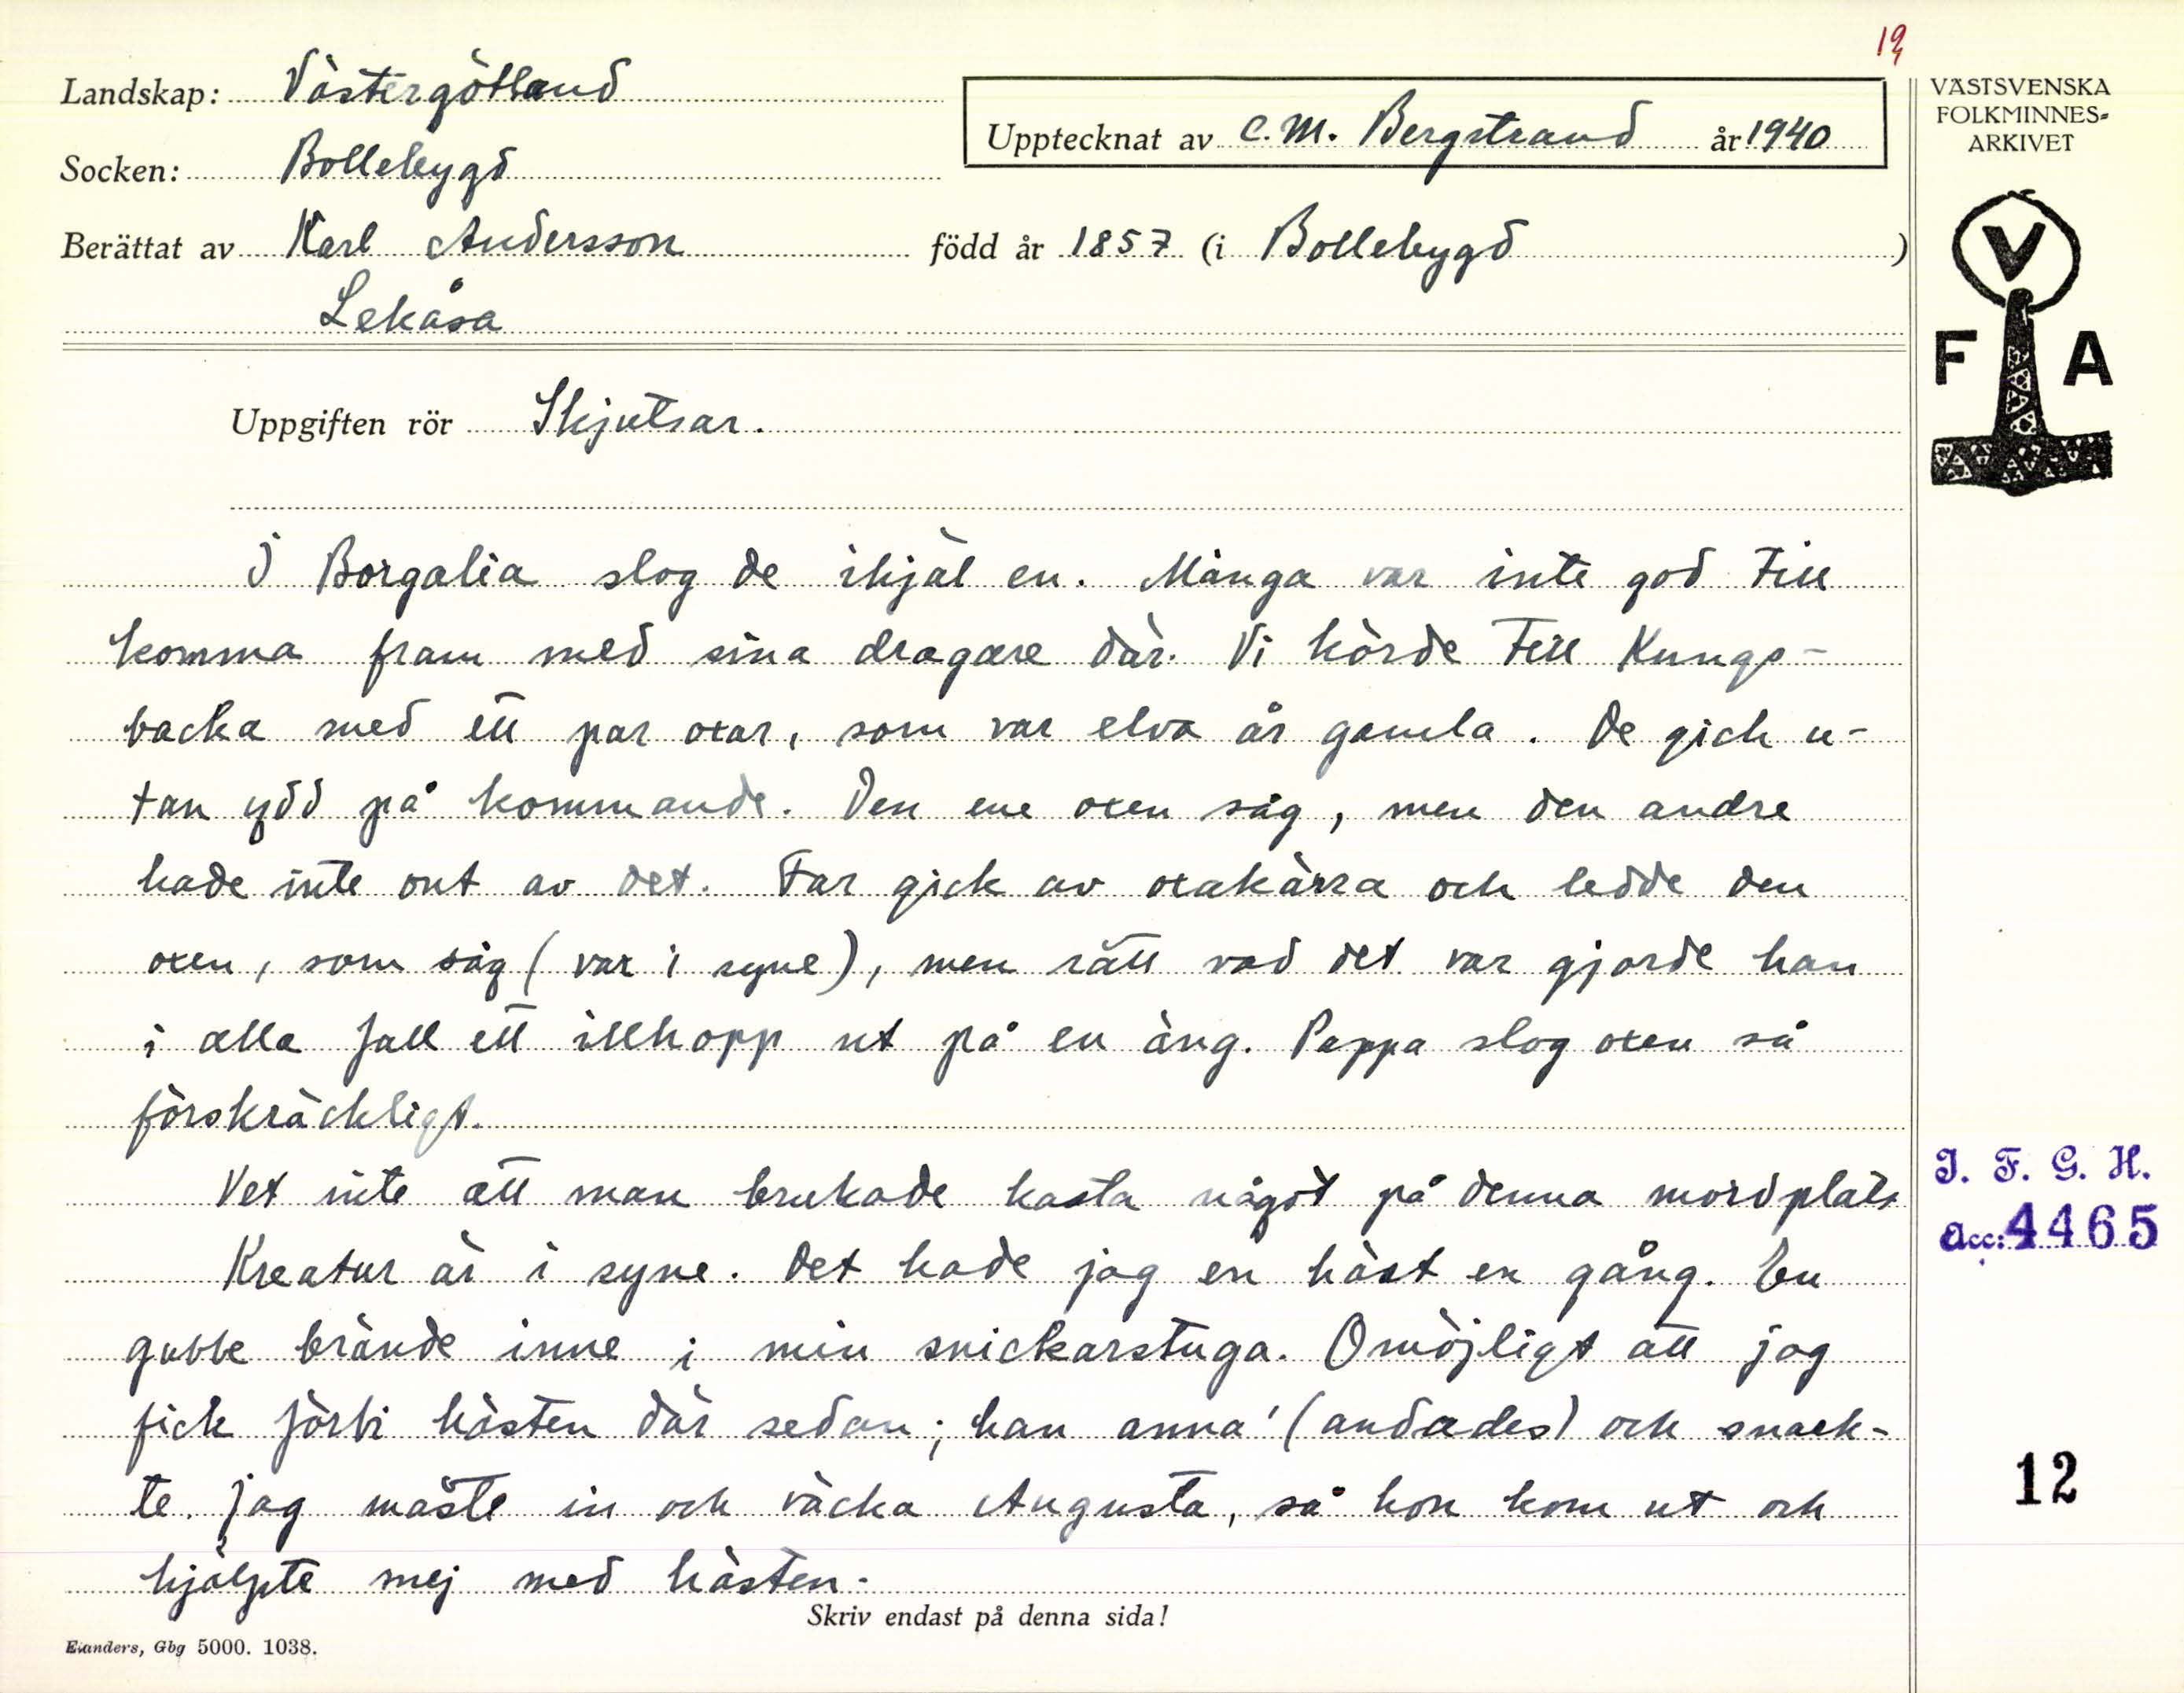 19
Landskap: Västergötland
Socken: Bollebygd
Berättat av Karl Andersson född år 1857 (i Bollebygd)
Lekåsa
Upptecknat av C. M. Bergstrand år 1940
VÄSTSVENSKA
FOLKMINNES-
ARKIVET
V
F A
Uppgiften rör Skjutsar.
I Borgalia slog de ihjäl en. Många var inte god till
komma fram med sina dragare där. Vi körde till Kungs-
backa med ett par oxar, som var elva år gamla. De gick u-
tan ydd på kommande. Den ene oxen såg, men den andre
hade inte ont av det. Far gick av oxakärra och ledde den
oxen, som såg (var i syne), men rätt vad det var gjorde han
i alla fall ett illhopp ut på en äng. Pappa slog oxen så
förskräckligt.
Vet inte att man brukade kasta något på denna mordplats
Kreatur är i syne. Det hade jag en häst en gång. En
gubbe brände inne i min snickarstuga. Omöjligt att jag
fick förbi hästen där sedan; han anna' (andades) och snark-
te. Jag måste in och väcka Augusta, så hon kom ut och
hjälpte mej med hästen.
Skriv endast på denna sida!
Elanders, Gbg 5000. 1038.
I. F. G. H.
Acc: 4465
12